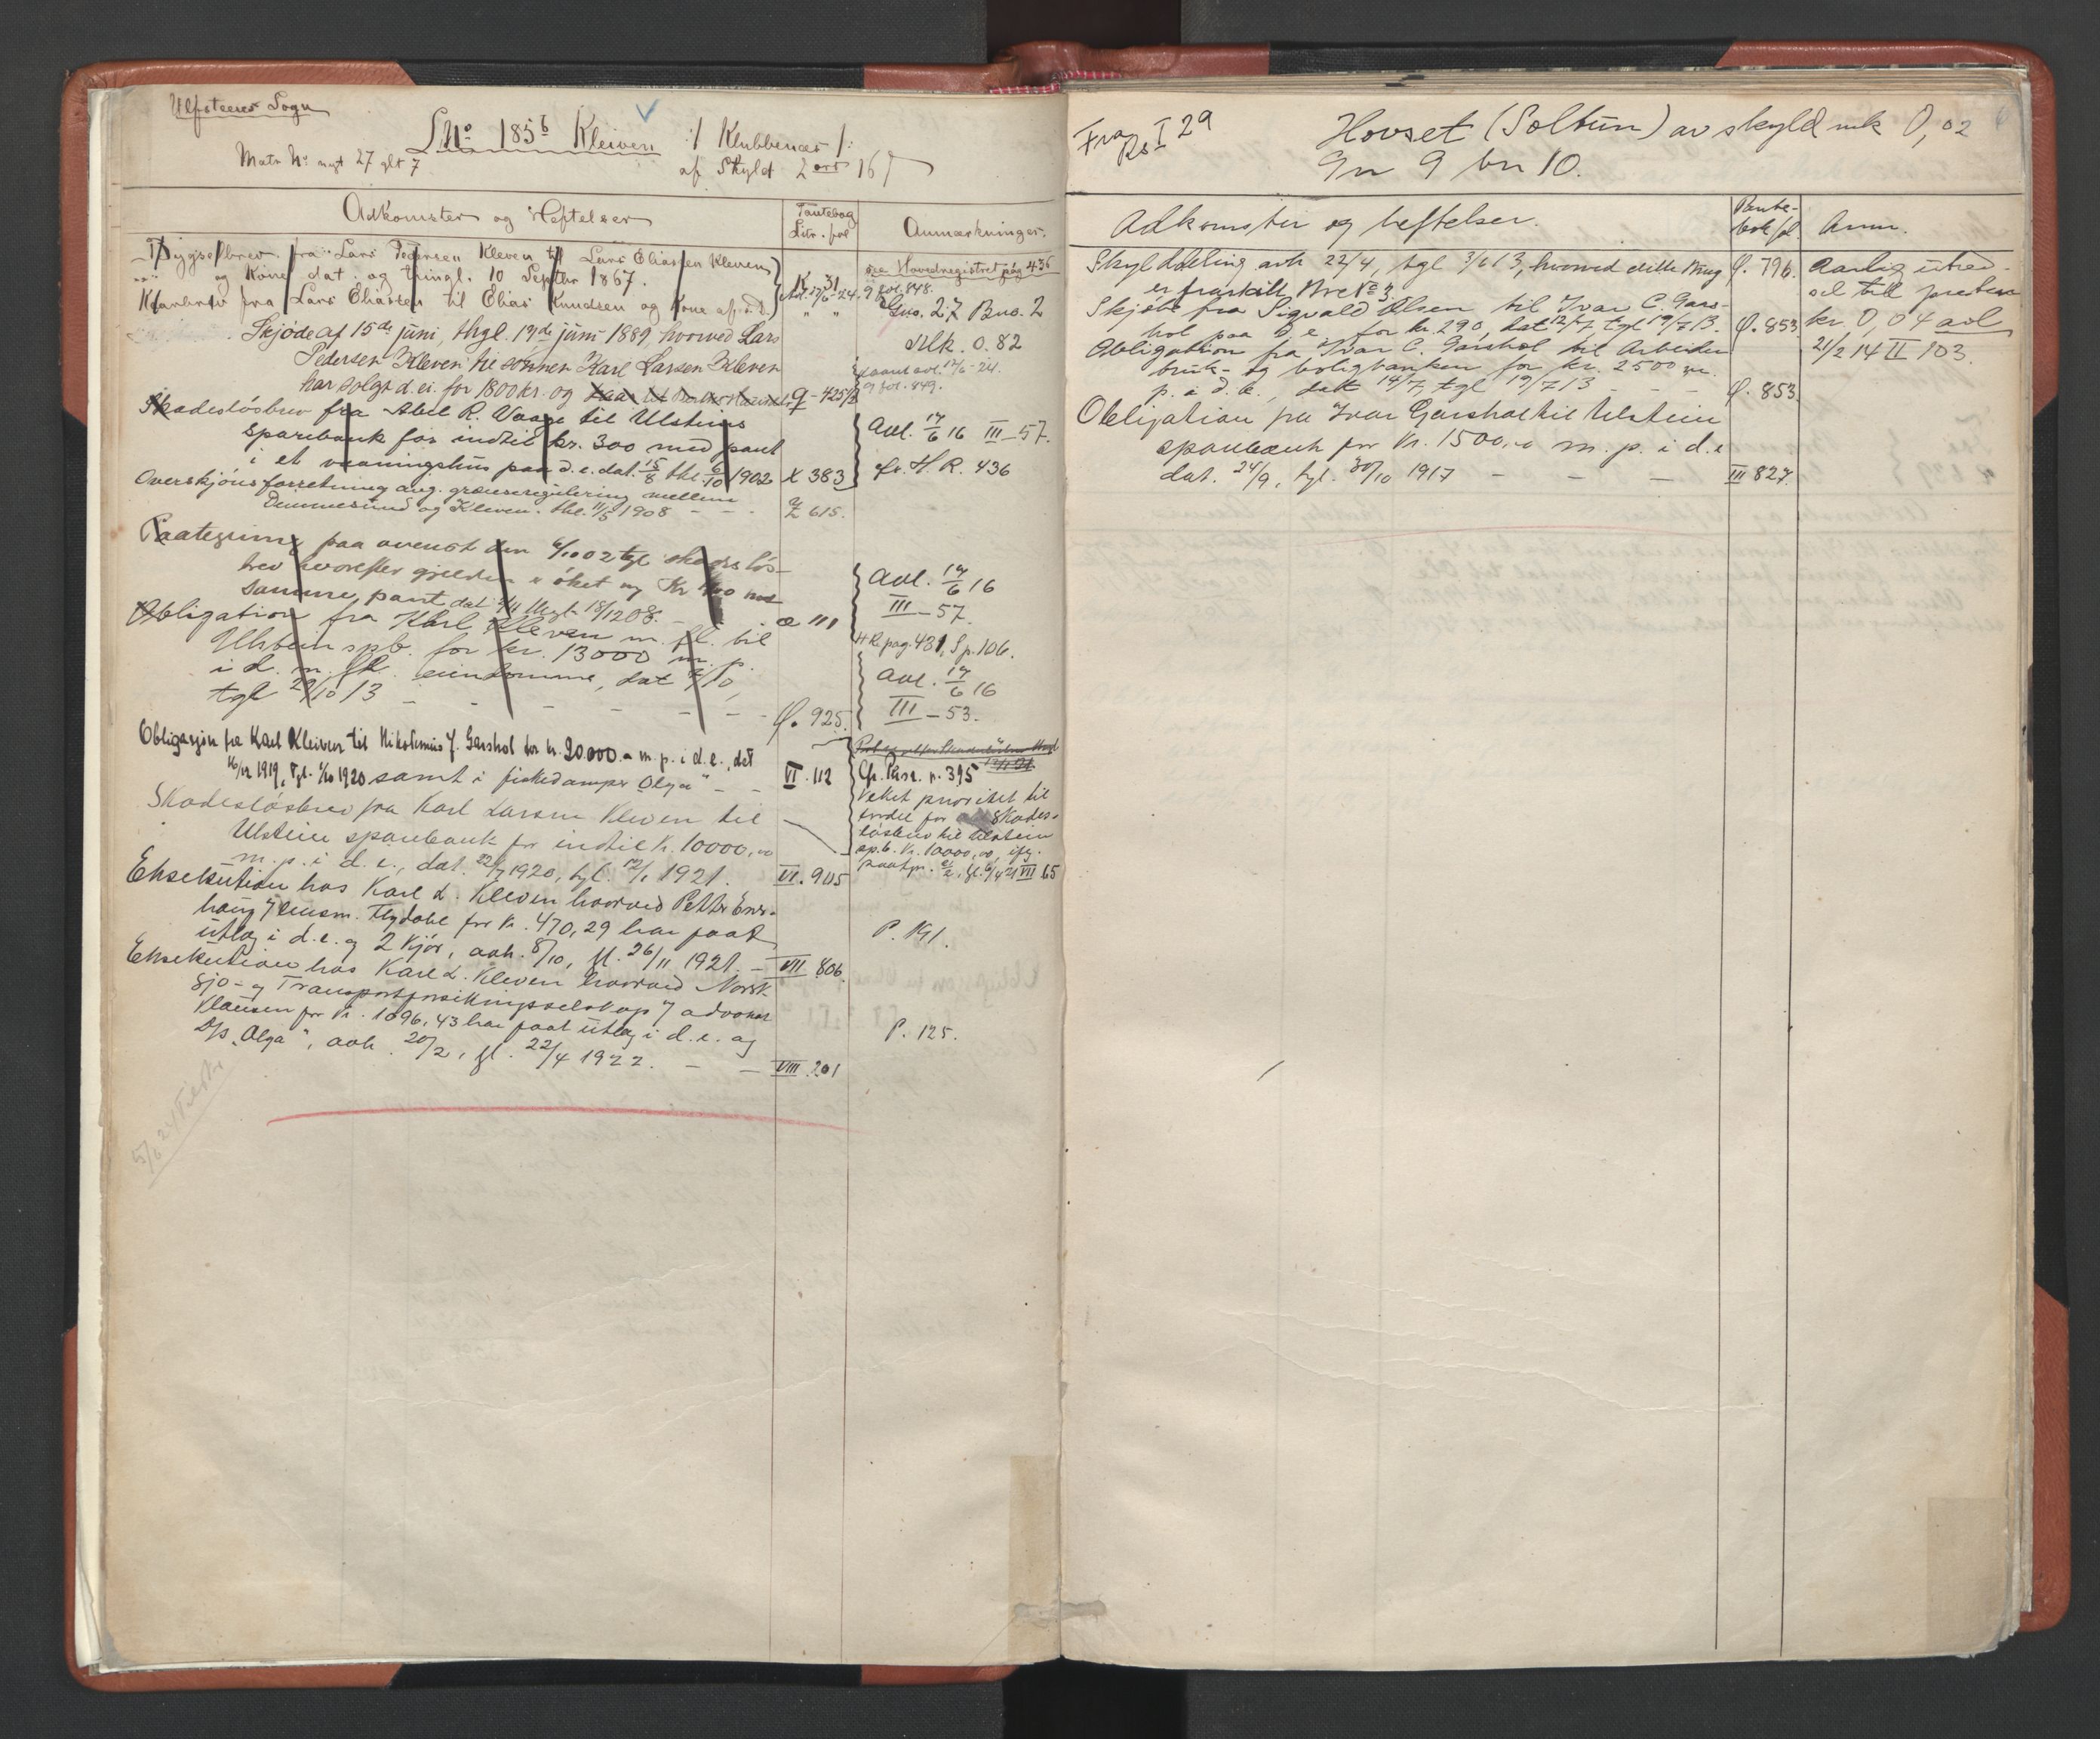 Ulfsteens Sogn
LNo 185b Kleiven :/ Klubbenæs /:
Matr No nyt 27 glt 7
af Skyld 2 ort 16
Adkomster og Heftelser
Pantebog
Litr. fol
Anmærkninger.
Bygselbrev fra Lars Pedersen Kleven til Lars Eliassen Kleven
og Kone dat. og thingl. 10 Septbr 1867.
K 31
see Hovedregistret pag 436
Kaarbrev fra Lars Eliassen til Elias Knudsen og Kone af s. d.
" "
9 fol. 848.
Gno. 27 Bno. 2
Skjøde af 15de juni, thgl. 17de juni 1889, hvorved Lars
Mk. 0.82
Pedersen Kleven til sønnen Karl Larsen Kleven
har solgt d. ei. for 1800 kr. og
q - 425
9 fol. 849.
Skadesløsbrev fra Abel R. Vaage til Ulsteins
sparebank for indtil kr. 300 med pant
i et vaaningshus paa d. e. dat. 15/8 thl. 6/10 1902
X 383
Avl. 17/6 16 III - 57.
cfr. H. R. 436
Overskjønsforretning ang. grænseregulering mellem
Dimmesund og Kleven. thl. 11/5 1908 - - -
Z 615.
Paategning paa ovenst den 6/10 02 tgl skadesløs-
brev hvorefter gjælden er øket
samme pant dat 9/11 thgl. 18/12 08. -
æ 111
Avl. 17/6 16
III - 57.
Obligation fra Karl Kleven m. fl. til
Ulstein spb. for kr. 13000 m. p.
i d. m. fl. eiendomme, dat 7/10,
tgl 29/10 13 - - - - - -
Q. 925.
H R. pag. 431, Sp. 106.
Avl. 17/6 16
III - 53.
Obligasjon fra Karl Kleiven til Nikolemus J. Garshol for kr. 20.000 - m. p. i d. e., dat
16/12 1919, Tgl. 1/10 1920 samt i fiskedamper Olga" - -
VI. 112
Cfr. Pkr. p. 395
Veket prioritet til
fordel for Skades-
løsbrev til Ulstein
sp.b. kr. 10000,00, ifg.
VII 65
Skadesløsbrev fra Karl Larsen Kleven til
Ulstein sparebank for indtil kr. 10000,00
m. p. i d. e., dat. 22/7 1920, tgl. 12/1 1921.
VI. 905
Eksekution hos Karl L. Kleven hvorved Petter
haug v/ lensm. Flydahl for kr. 470,29 har faat
utlæg i d. e. og 2 kjør, avh. 8/10, tgl. 26/11 1921. -
VII 806.
P. 191.
Eksekution hos Karl L. Kleven hvorved Norsk
Sjø- og Transportforsikringsselskap v/ advokat
Klausen for kr. 1096,43 har faat utlæg i d. e. og
D/s „Olga", avh. 20/2, tgl. 22/4 1922. - -
VIII. 201
P. 125.
5/6 24
Fra Rs I 29
Hovset (Soltun) av skyld mk 0,02
Gn 9 bn 10.
Adkomster og heftelser.
Pante-
bok fol.
Anm.
Skylddeling avh 22/4, tgl 3/6 13, hvorved dette bruk
er fraskilt Bno 3
Q. 796.
Aarlig utred-
sel till presten
kr. 0,04 avl
21/2 14 II 103.
Skjøte fra Sigvald Olsen til Ivar C. Gars-
hol paa d e. for kr. 290, dat 12/7, tgl 19/7 13.
Q. 853
Obligation fra Ivar C. Garshol til Arbeider
bruk- og boligbanken for kr. 2500 m.
p. i d. e., dat 14/7, tgl 19/7 13 - - -
Q. 853.
Obligation fra Ivar Garshol til Ulstein
sparebank for kr. 1500,00 m. p. i d. e
dat. 24/9, tgl. 30/10 1917 - - -
III 827.